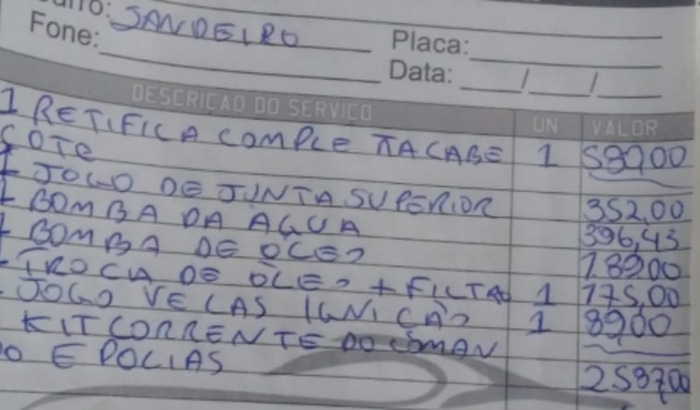 SANDEIRO
Fone:
Placa:
Data: / /
DESCRICAO DO SERVICO UN VALOR
1 RETIFICA COMPLETA CABE 1 58900
ÇOTE
1 JOGO DE JUNTA SUPERIOR 352,00
1 BOMBA DA AGUA 396,43
1 BOMBA DE OLEO 18900
TROCA DE OLEO + FILTRO 1 175,00
JOGO VELAS IGNIÇÃO 1 8900
KIT CORRENTE DO COMAN
DO E POLIAS 258700